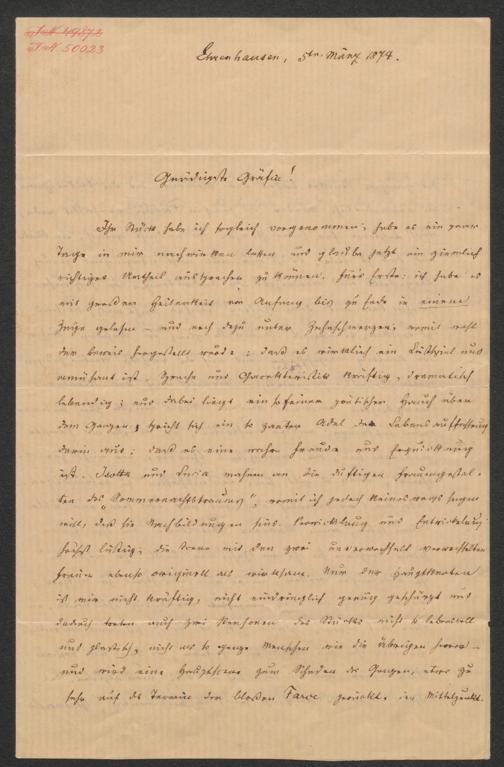 I.N. 49872
I.N. 50023
Ehrenhausen, 5ten März 1874.
Gnädigste Gräfin!
Ihr Stück habe ich sogleich vorgenommen, habe es ein paar
Tage in mir nachwirken lassen, und glaube jetzt ein ziemlich
richtiges Urtheil aussprechen zu können. Fürs Erste: ich habe es
mit großer Heiterkeit von Anfang bis zu Ende in einem
Zuge gelesen – und noch dazu unter Zahnschmerzen, womit wohl
der Beweis hergestellt wäre: daß es wirklich ein Lustspiel und
amüsant ist. Sprache und Charakteristik kräftig, dramatisch
lebendig; und dabei liegt ein so feiner poetischer Hauch über
dem Ganzen, spricht sich ein so zarter Adel der Lebensauffassung
darin aus: daß es eine wahre Freude und Erquickung
ist. Isotta und Lucia mahnen an die duftigen Frauengestal-
ten des "Sommernachtstraums", womit ich jedoch keineswegs sagen
will, daß sie Nachbildungen sind. Verwicklung und Entwicklung
höchst lustig; die Scene mit den zwei unversehrt verwechselten
Frauen ebenso originell als wirksam. Nur der Hauptknoten
ist mir nicht kräftig, nicht eindringlich genug geschürzt und
dadurch treten auch zwei Personen des Stückes nicht so lebensvoll
und plastisch, nicht als so ganze Menschen wie die übrigen hervor –
und wird eine Hauptscene zum Schaden des Ganzen, etwas zu
sehr auf das Terrain der bloßen Farce gerückt. Im Mittelpunkt